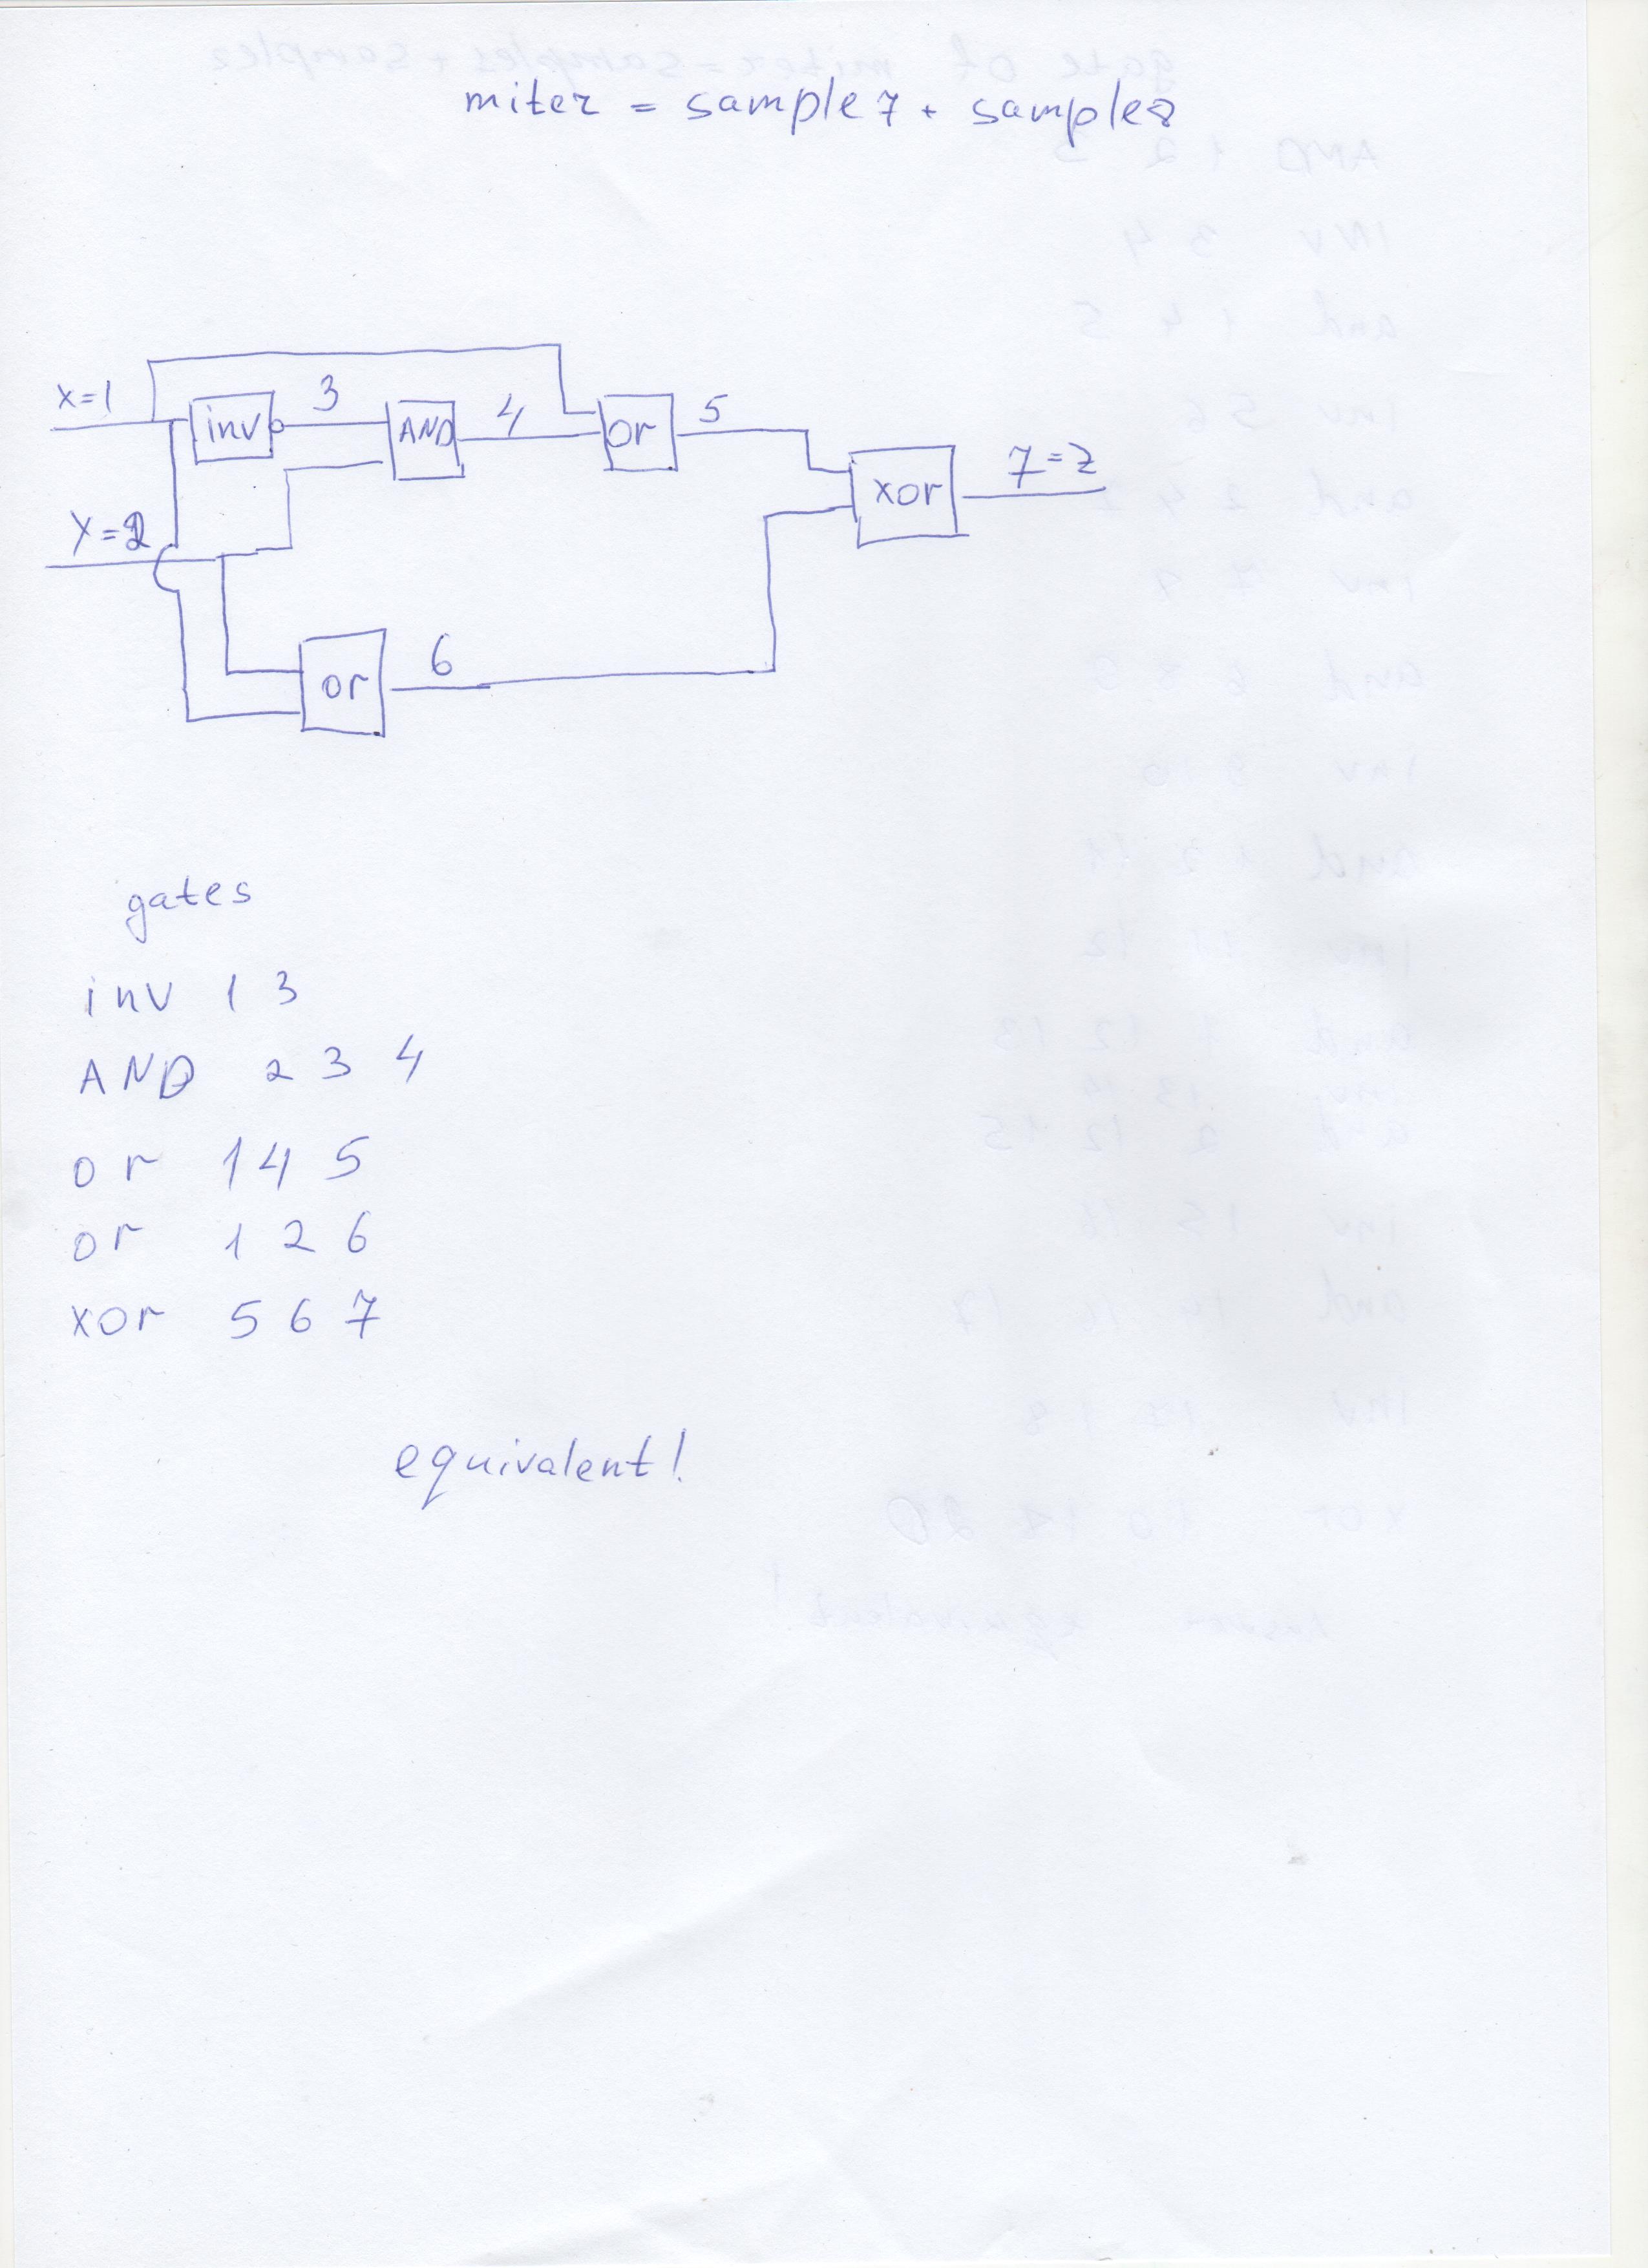 miter = sample7 + sample8
x=1
inv
3
AND
4
or
5
xor
7=z
y=2
or
6
gates
inv 1 3
AND 2 3 4
or 1 4 5
or 1 2 6
xor 5 6 7
equivalent!